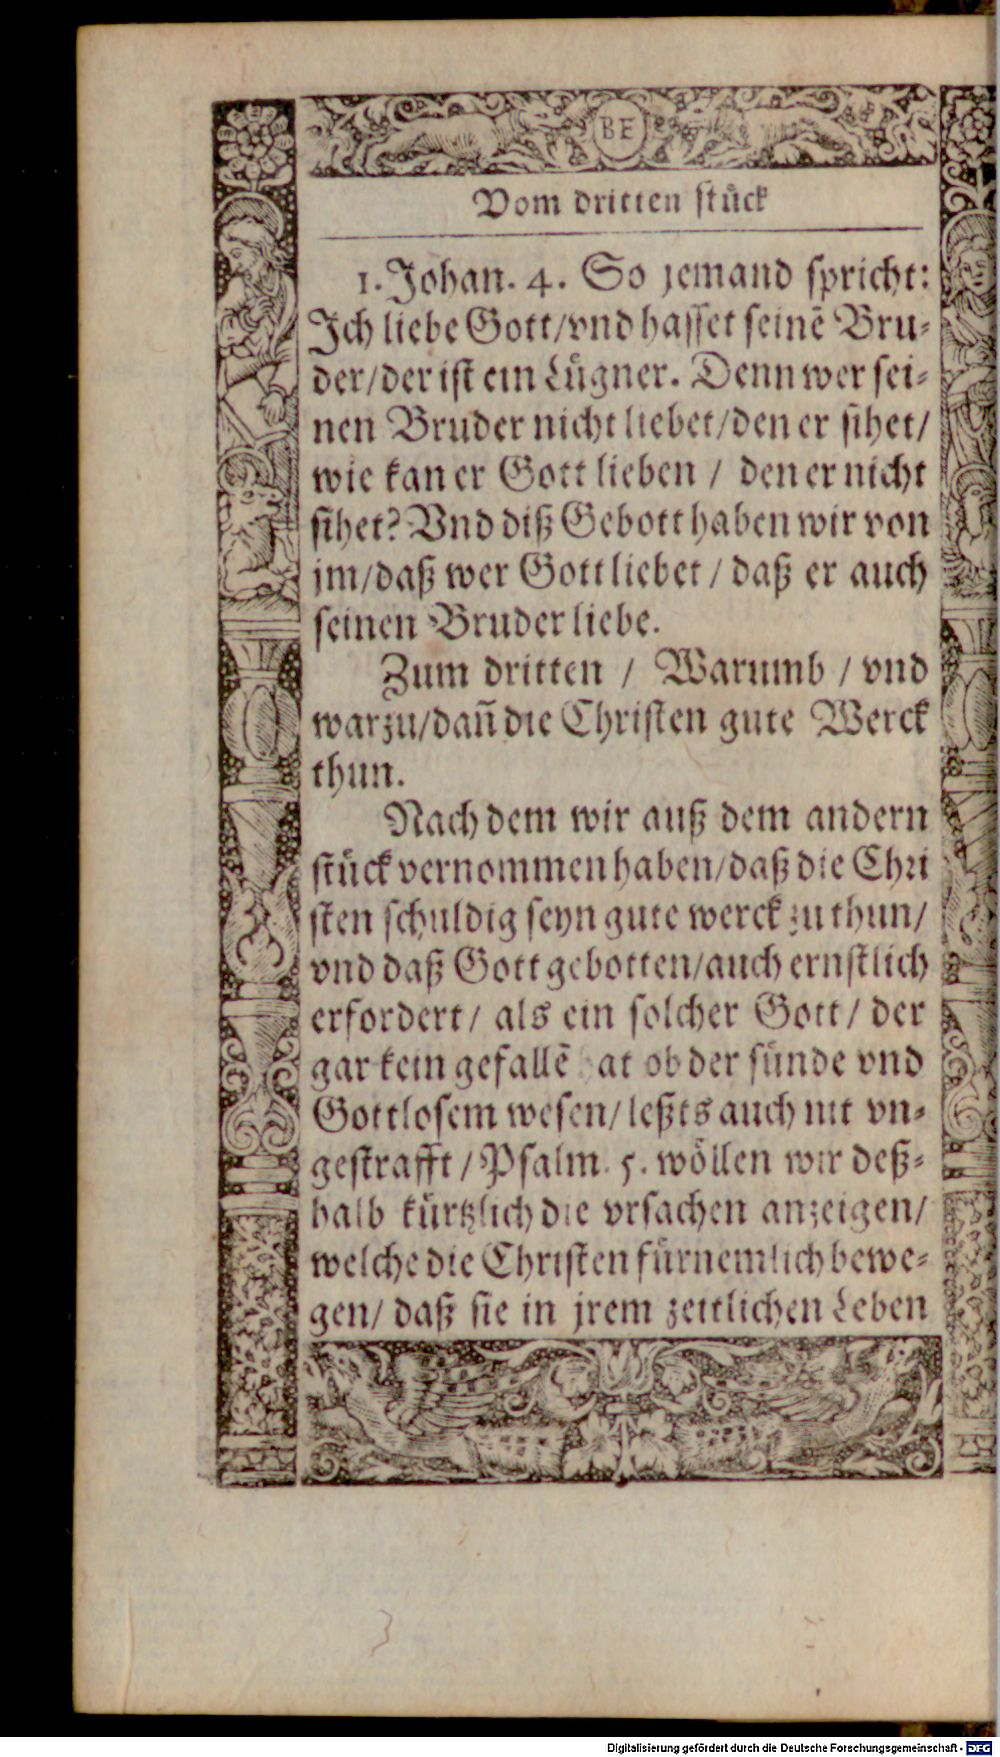 BE
Vom dritten stuͤck
1. Johan. 4. So jemand spricht:
Ich liebe Gott/vnd hasset seinē Bru⸗
der/der ist ein Luͤgner. Denn wer sei⸗
nen Bruder nicht liebet/den er sihet/
wie kan er Gott lieben / den er nicht
sihet? Vnd diß Gebott haben wir von
jm/daß wer Gott liebet / daß er auch
seinen Bruder liebe.
Zum dritten / Warumb / vnd
warzu/dañ die Christen gute Werck
thun.
Nach dem wir auß dem andern
stuͤck vernommen haben/daß die Chri
sten schuldig seyn gute werck zu thun/
vnd daß Gott gebotten/auch ernstlich
erfordert/ als ein solcher Gott/ der
gar kein gefallē hat ob der suͤnde vnd
Gottlosem wesen/leßts auch nit vn⸗
gestrafft/Psalm. 5. woͤllen wir deß⸗
halb kuͤrtzlich die vrsachen anzeigen/
welche die Christen fuͤrnemlich bewe⸗
gen/ daß sie in jrem zeitlichen Leben
Digitalisierung gefördert durch die Deutsche Forschungsgemeinschaft - DFG